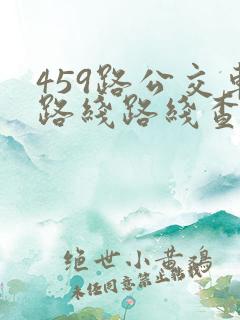 459路公交车
路线路线查
绝世小黄鸡
未经同意禁止转载